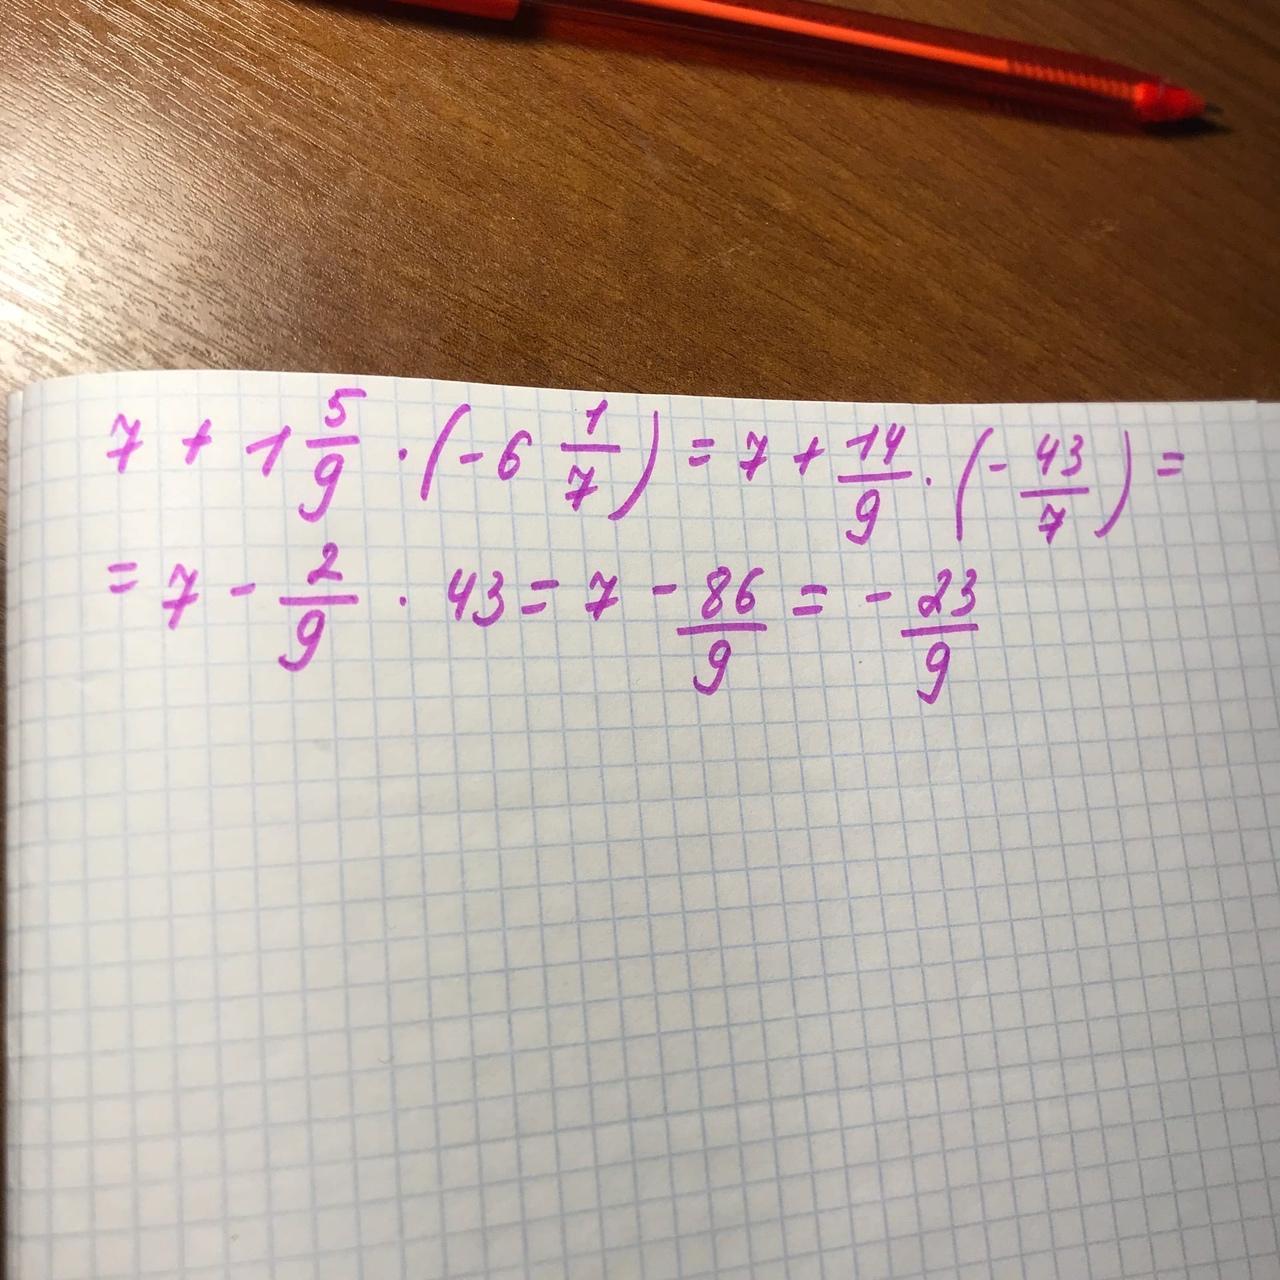 7 + 1 5/9 · (-6 1/7) = 7 + 14/9 · (- 43/7) =
= 7 - 2/9 · 43 = 7 - 86/9 = - 23/9